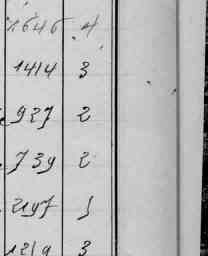 1646 4
1414 3
927 2
739 2
2197 1
1219 3